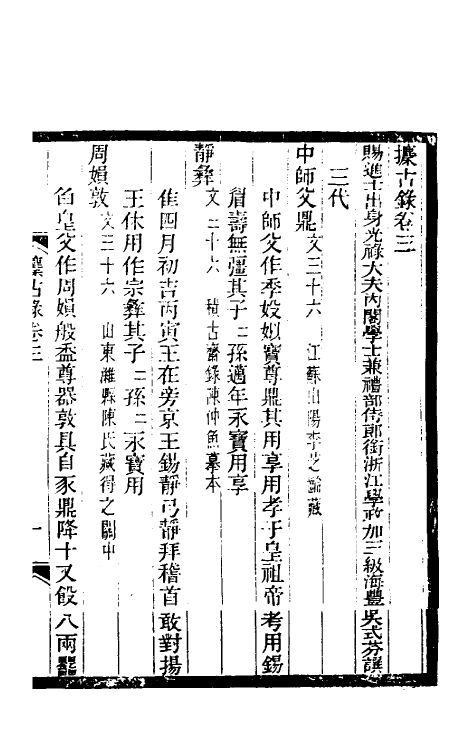 攈古錄卷三
賜進士出身光祿大夫內閣學士兼禮部侍郎銜浙江學政加三級海豐吳式芬譔
三代
中師父鼎 文三十六 江蘇山陽李芝齡藏
中師父作季妀姒寶尊鼎其用享用孝于皇祖帝考用錫
眉壽無彊其子二孫邁年永寶用享
靜彝 文三十六 積古齋錄陳仲魚摹本
隹四月初吉丙寅王在旁京王錫靜弓靜拜稽首敢對揚
王休用作宗彝其子二孫二永寶用
周娟敦 文三十六 山東濰縣陳氏藏得之關中
皇父作周娟般盉尊器敦具自豕鼎降十又𣪘八兩
攈古錄卷三
一